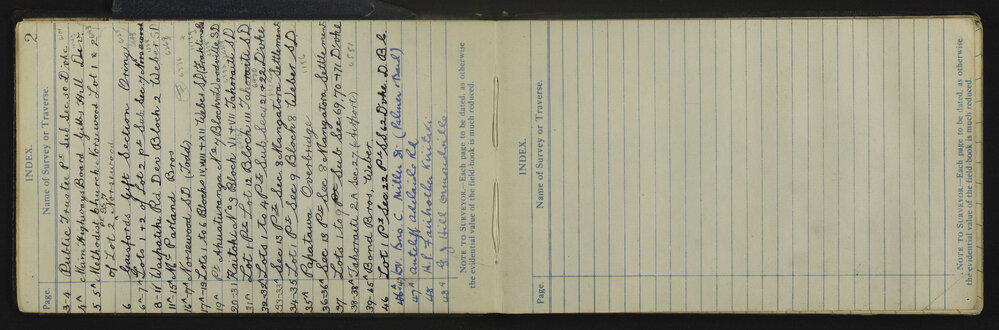 2
INDEX.
Page. Name of Survey or Traverse.
3-4 Public Trustee Pt Sub Sec 10 D'vke
4A Main Highways Board Gifts Hill Dev.
5 5A Methodist Church Norsewood Lot 1 & 2
of Lot 2 Norsewood
6 Gaisfords Gift Section Oringi
6A-7A Lots 1 + 2 of Lot 2 Pt Sub Sec 7 Norsewood
8-11 Waipatiki Rd Dev Block 2 Weber S.D
11A-15A McParland Bros
16A-7A Norsewood SD (Todd)
17A-19 Lots 1 to 6 Blocks IV, VIII + XII Weber SD (Franklin)
19A Pt Ahuaturanga No 7 Block VII Woodville SD
20-31 Kaitoki No 3 Block VI + VII Tahoraiti SD
31A Lot 1 Pt Lot 12 Block III Tahoraiti SD
32-33 Lots 1 to 4 Pt Sub Sec 12, 21 + 22 D'vke
33-33A Sec 13 Pt Sec 8 Mangatora Settlement
34-35 Lot 1 Pt Sec 9 Block 8 Weber SD
35A Papatawa Overbridge
36-36A Sec 13 Pt Sec 8 Mangatora Settlement
37 Lots 1 to 9 Pt Sub Sec 69, 70 + 71 D'vke
38-38A Tahoraiti 2A Sec 27
39-45A Bond Bros, Weber
46 Lot 1 Pt Sec 22 Pt SS 62 D'vke D.B.C.
46A-47 Bro. C. Miller St (Palmer Bard)
47A Antcliff Adelaide Rd
48 H.P. Fairholke
48A G.J Hill Ormondville
NOTE TO SURVEYOR.—Each page to be dated, as otherwise
the evidential value of the field-book is much reduced.
INDEX.
Page. Name of Survey or Traverse.
NOTE TO SURVEYOR.—Each page to be dated, as otherwise
the evidential value of the field-book is much reduced.